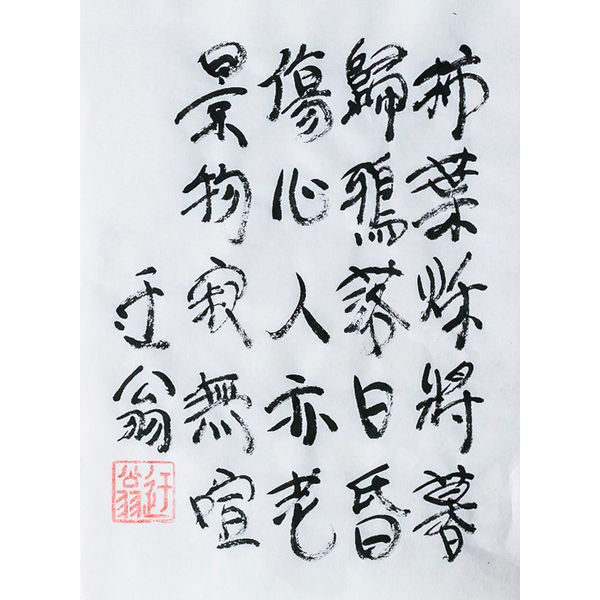 柿葉秌將暮
歸鴉落日昏
傷心人亦老
景物寂無喧
迂翁
迂翁